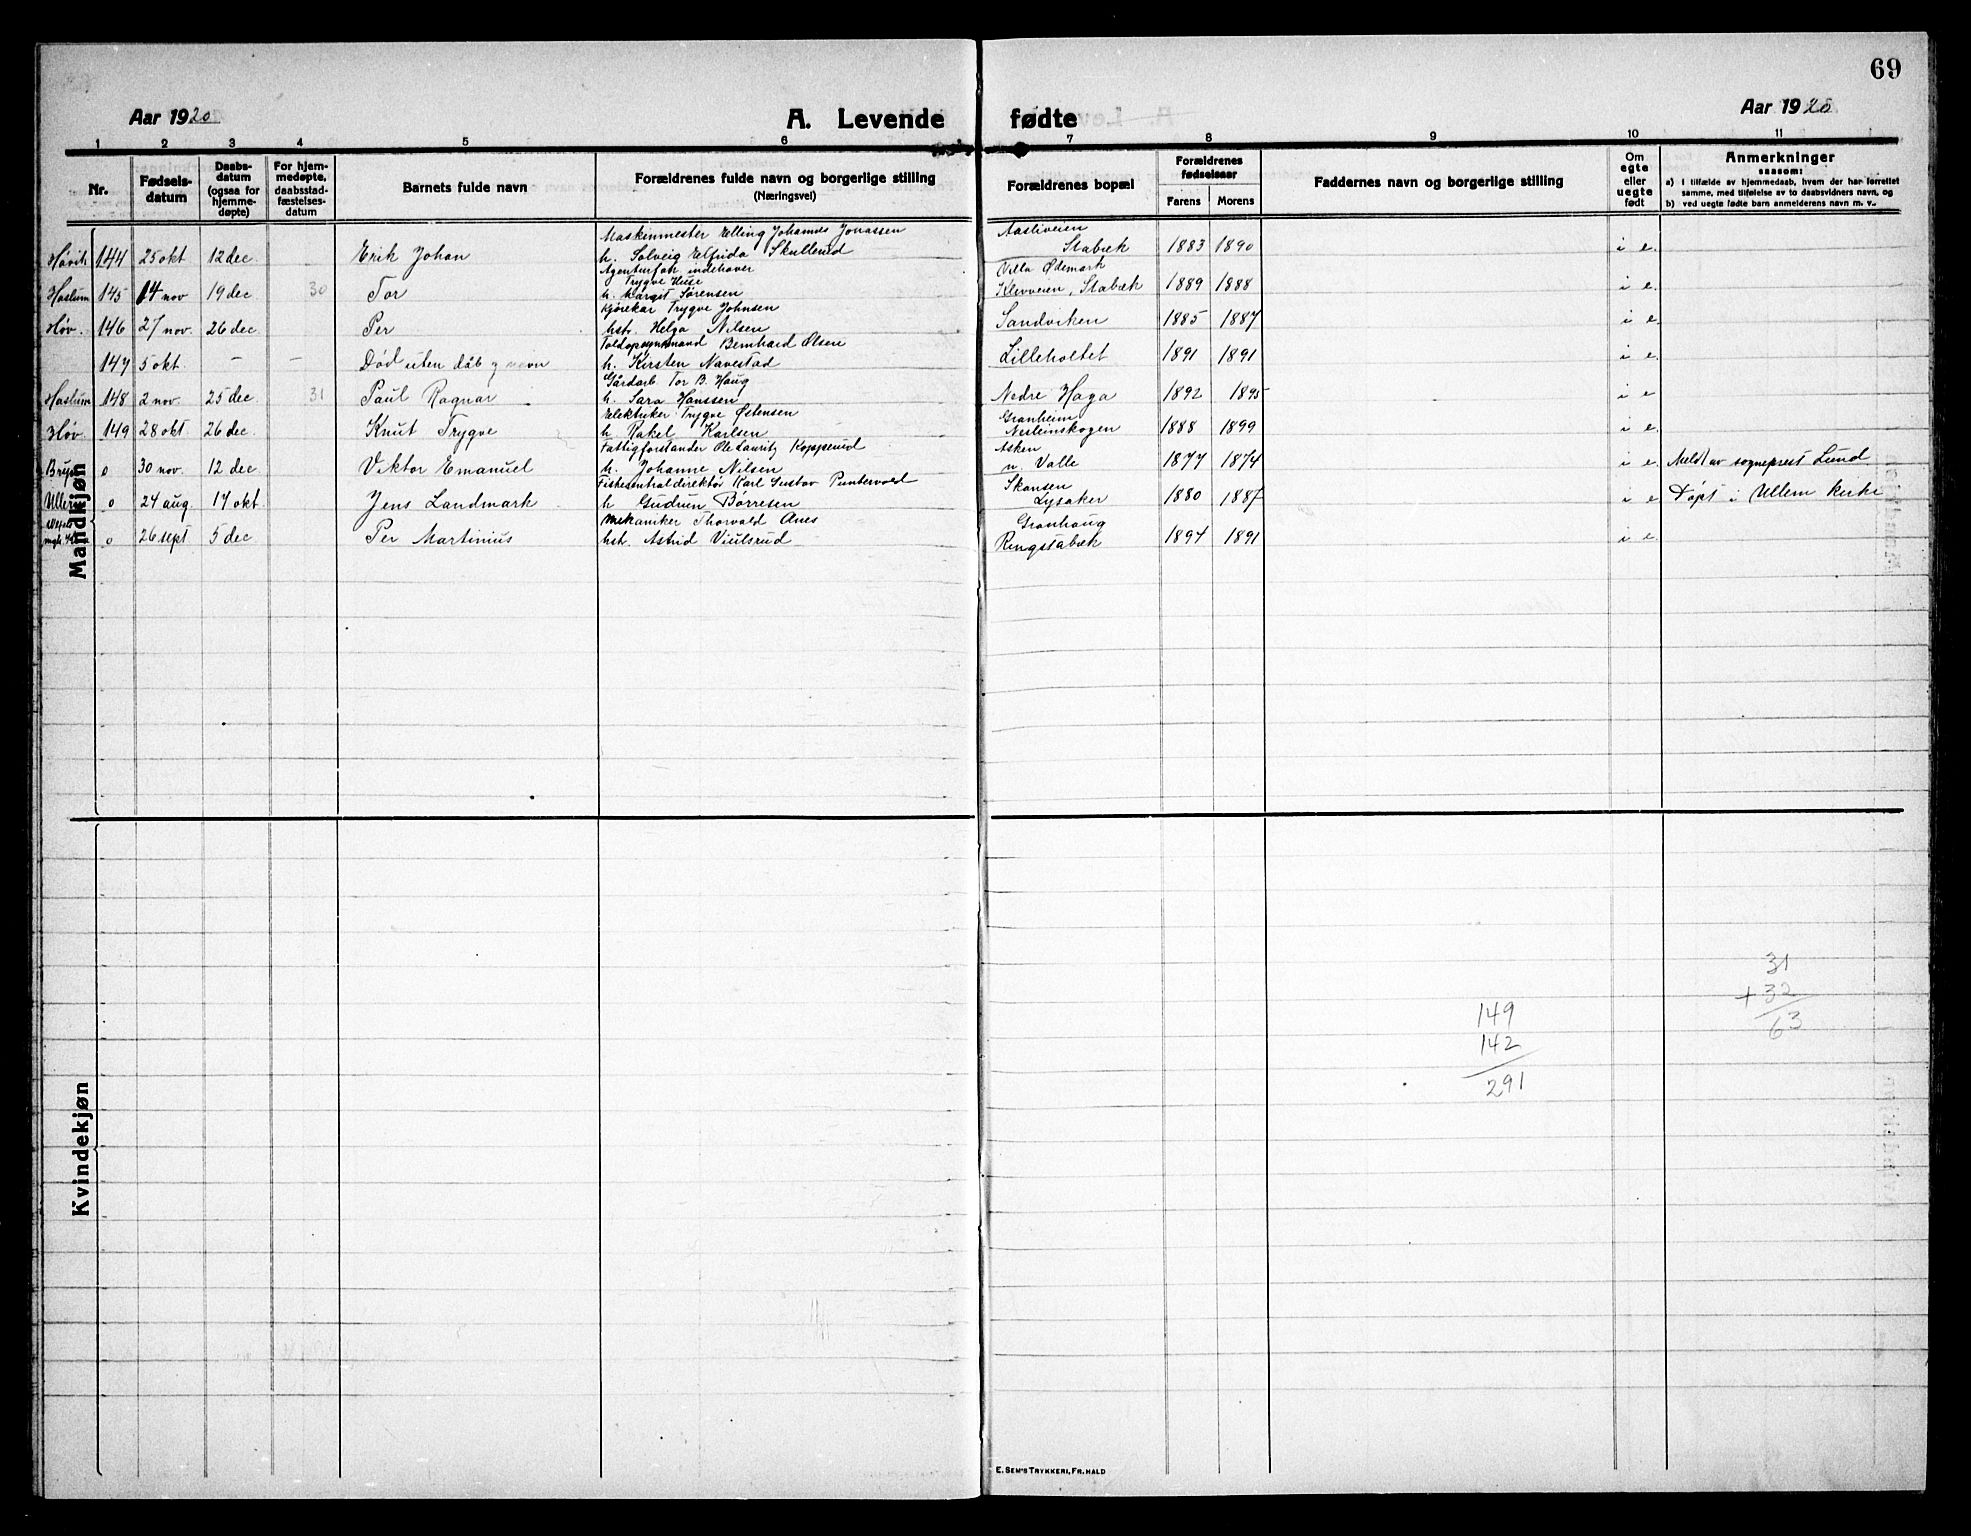 69
Aar 1920
A. Levende fødte
Aar 1920
1 2 3 4 5 6 7 8 9 10 11
Nr.
Fødsels-
datum
Daabs-
datum
(ogsaa for
hjemme-
døpte)
For hjem-
medøpte,
daabsstad-
fæstelses-
datum
Barnets fulde navn
Forældrenes fulde navn og borgerlige stilling
(Næringsvei)
Forældrenes bopæl
Forældrenes
fødselsaar
Farens Morens
Faddernes navn og borgerlige stilling
Om
egte
eller
uegte
født
Anmerkninger
saasom:
a) i tilfælde av hjemmedaab, hvem der har forrettet
samme, med tilføielse av to daabsvidners navn, og
b) ved uegte fødte barn anmelderens navn m. v.
Mandkjøn
Maskinmester Elling Johannes Jonassen Aasliveien
Høvik 144 25 okt 12 dec Erik Johan h. Solveig Elfrida Skullerud Stabæk 1883 1890 i e.
Agenturfoh. indehaver Villa Ødemark
Trygve Huse
Haslum 145 14 nov 19 dec 30 Tor h. Margit Sørensen Klevveien, Stabæk 1889 1888 i e.
Kjørekar Trygve Johnsen
Høv. 146 27 nov. 26 dec Per hstr. Helga Nilsen Sandviken 1885 1887 i e.
Bernhard Olsen
147 5 okt. – – Død uten dåb og navn h. Kirsten Navestad Lilleholtet 1891 1891 i e.
Gårdarb. Tor B. Haug
Haslum 148 2 nov. 25 dec 31 Paul Ragnar h. Sara Hanssen Nedre Haga 1892 1895 i e
Elektriker Trygve Østensen Granheim
Høv. 149 28 okt. 26 dec. Knut Trygve h Rakel Karlsen 1888 1899 i e.
Fattigforstander Ole Lauritz Kopperud Asken
Bryn o 30 nov. 12 dec Viktor Emanuel h. Johanne Nilsen n. Valle 1877 1874 i e. Meldt av sogneprest Lund
Fiskecentraldirektør Karl Gustav Puntervold Skansen
Ullern o 24 aug. 17 okt. Jens Landmark h Gudrun Børresen Lysaker 1880 1887 i e Døpt i Ullern kirke
Mekaniker Thorvald Anes Granhaug
o 26 sept 5 dec Per Martinius hst. Astrid Viulsrud Ringstabæk 1894 1891 i e.
Kvindekjøn
31
+ 32
63
149
142
291
E. SEM'S TRYKKERI, FR. HALD